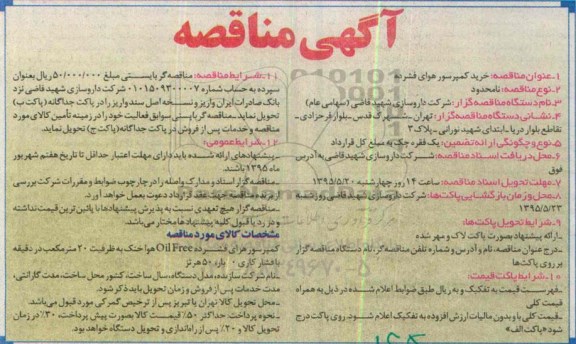 آگهی مناقصه
۱ـ عنوان مناقصه: خرید کمپرسور هوای فشرده
۲ـ نوع مناقصه: نامحدود
۳ـ نام دستگاه مناقصه گزار: شرکت داروسازی شهید قاضی (سهامی عام)
۴ـ نشانی دستگاه مناقصه گزار: تهران ـ شهرک قدس ـ بلوار فرحزادی ـ
تقاطع بلوار دریا ـ ابتدای شهید نورانی ـ پلاک ۳
۵ـ نوع و چگونگی ارائه تضمین: یک فقره چک به مبلغ کل قرارداد
۶ـ محل دریافت اسناد مناقصه: شرکت داروسازی شهید قاضی به آدرس
فوق
۷ـ مهلت تحویل اسناد مناقصه: ساعت ۱۴ روز چهارشنبه ۱۳۹۵/۵/۲۰
۸ـ محل و زمان بازگشایی پاکت‌ها: شرکت داروسازی شهید قاضی روز شنبه
۱۳۹۵/۵/۲۳
۹ـ شرایط تحویل پاکت‌ها:
ـ ارائه پیشنهاد بصورت پاکت لاک و مهر شده
ـ درج عنوان مناقصه، نام و آدرس و شماره تلفن مناقصه گر، نام دستگاه مناقصه گزار
بر روی پاکت‌ها
۱۰ـ شرایط پاکت قیمت:
ـ فهرست قیمت به تفکیک و به ریال طبق ضوابط اعلام شده در ذیل به همراه
قیمت کلی
ـ قیمت کلی با و بدون مالیات ارزش افزوده به تفکیک اعلام شود. روی پاکت درج
شود «پاکت الف»
۱۱ـ شرایط مناقصه: مناقصه گر بایستی مبلغ ۵۰/۰۰۰/۰۰۰ ریال بعنوان
سپرده به حساب شماره ۰۱۰۱۵۰۹۳۰۰۰۰۷ شرکت داروسازی شهید قاضی نزد
بانک صادرات ایران واریز و نسخه اصل سند واریز را در پاکت جداگانه (پاکت ب)
تحویل نماید. مناقصه گر بایستی سوابق فعالیت خود را در زمینه تأمین کالای مورد
مناقصه و خدمات پس از فروش در پاکت جداگانه (پاکت ج) تحویل نماید.
۱۲ـ شرایط عمومی:
ـ پیشنهادهای ارائه شده باید دارای مهلت اعتبار حداقل تا تاریخ هفتم شهریور
ماه ۱۳۹۵ باشند.
ـ مناقصه گزار اسناد و مدارک واصله را در چارچوب ضوابط و مقررات شرکت بررسی
از برنده مناقصه جهت عقد قرارداد دعوت بعمل خواهد آورد.
ـ مناقصه گزار هیچ تعهدی نسبت به پذیرش پیشنهادها با پائین ترین قیمت نداشته
و در رد یا قبول کلیه پیشنهادها مختار می‌باشد.
مشخصات کالای مورد مناقصه
کمپرسور هوای فشرده Oil Free هوا خنک به ظرفیت ۲۰ متر مکعب در دقیقه
با فشار کاری ۱۰ بار، ۵۰ هرتز
ـ نام شرکت سازنده، مدل دستگاه، سال ساخت، کشور محل ساخت، مدت گارانتی،
مدت خدمات پس از فروش و زمان تحویل باید ذکر شود.
ـ محل تحویل کالا تهران یا تبریز پس از ترخیص گمرکی مورد قبول می‌باشد.
ـ نحوه پرداخت، حداکثر ۵۰٪ قیمت کالا بصورت پیش پرداخت، ۳۰٪ در زمان
تحویل کالا و ۲۰٪ پس از راه‌اندازی و تحویل دستگاه خواهد بود.